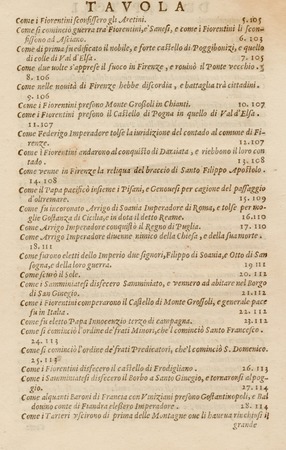 TAVOLA
Come i Fiorentini sconfissero gli Aretini. 5.105
Come si comincio guerra tra Fiorentini, e Sanesi, e come i Fiorentini li scon-
fissono ad Asciano. 6.105
Come di prima fu edificato il nobile, e forte castello di Poggibonizi, e quello
di colle di Val d'Elsa. 7.105
Come due volte s'apprese il fuoco in Firenze, e rouinò il Ponte vecchio.
8.106
Come nelle nouità di Firenze hebbe discordia, e battaglia trà cittadini.
9.106
Come i Fiorentini presono Monte Grossoli in Chianti. 10.107
Come i Fiorentini presono il Castello di Pogna in quello di Val d'Elsa.
11.107
Come Federigo Imperadore tolse la iuridizione del contado al comune di Fi-
renze. 12.107
Come i Fiorentini andarono al conquisto di Damiata, e riebbono il loro con
tado. 13.108
Come venne in Firenze la reliqua del braccio di Santo Filippo Apostolo.
14.108
Come il Papa pacificò insieme i Pisani, e Genouesi per cagione del passaggio
d'oltremare. 15.109
Come fu incoronato Arrigo di Soauia Imperadore di Roma, e tolse per mo-
glie Gostanza di Cicilia, e in dota il detto Reame. 16.110
Come Arrigo Imperadore conquistò il Regno di Puglia. 17.110
Come Arrigo Imperadore diuenne nimico della Chiesa, e della sua morte.
18.111
Come furono eletti dello Imperio due signori, Filippo di Soauia, e Otto di San
sogna, e della loro guerra. 19.111
Come scurò il Sole. 20.112
Come i Samminiatesi disfecero Samminiato, e vennero ad abitare nel Borgo
di San Ginegio. 21.112
Come i Fiorentini comperarono il Castello di Monte Grossoli, e generale pace
fu in Italia. 22.112
Come fu eletto Papa Innocenzio terzo di campagna. 23.112
Come si cominciò l'ordine de' frati Minori, che'l cominciò Santo Francesco.
24.113
Come si cominciò l'ordine de' frati Predicatori, che'l cominciò S. Domenico.
25.113
Come i Fiorentini disfecero il castello di Frodigliano. 26.113
Come i Samminiatesi disfecero il Borbo a Santo Ginegio, e tornaronsi al pog-
gio. 27.114
Come alquanti Baroni di Francia con Viniziani presono Gostantinopoli, e Bal
douino conte di Fiandra elessero Imperadore. 28.114
Come i Tarteri vscirono di prima delle Montagne oue li haueua rinchiusi il
grande